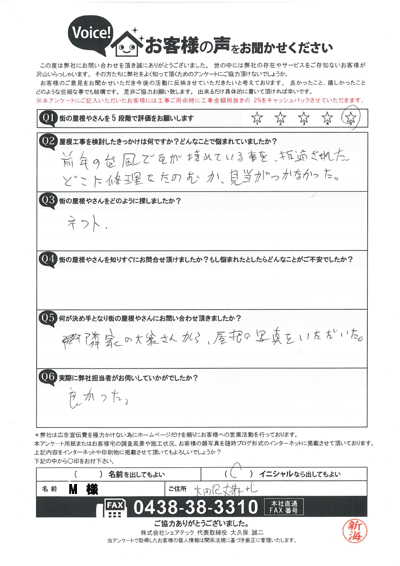 Voice!
お客様の声をお聞かせください
この度は弊社にお問い合わせを頂き誠にありがとうございました。 世の中には弊社の存在やサービスをご存知ないお客様が
沢山いらっしゃいます。 その方たちに弊社をよく知って頂くためのアンケートにご協力頂けないでしょうか。
お客様のご意見をお聞かせいただき今後の活動に反映させていただきたいと考えております。 良かったこと、嬉しかったこと
どのような些細な事でも結構です。 是非ご協力お願い致します。 出来るだけ具体的に書いて頂ければ幸いです。
※本アンケートにご記入いただいたお客様には工事ご用命時に工事金額税抜きの 2%をキャッシュバックさせていただきます。
Q1 街の屋根やさんを5段階で評価をお願いします ☆ ☆ ☆ ☆ ☆
Q2 屋根工事を検討したきっかけは何ですか？どんなことで悩まれていましたか？
前年の台風で瓦が壊れている事を、指摘された。
どこに修理をたのむか、見当がつかなかった。
Q3 街の屋根やさんをどのように探しましたか？
ネット.
Q4 街の屋根やさんを知りすぐにお問合せ頂けましたか？もし悩まれたとしたらどんなことがご不安でしたか？
Q5 何が決め手となり街の屋根やさんにお問い合わせ頂きましたか？
隣家の大家さんから、屋根の写真をいただいた。
Q6 実際に弊社担当者がお伺いしていかがでしたか？
良かった。
＊弊社は広告宣伝費を極力かけない為にホームページだけを頼りにお客様への営業活動を行っております。
本アンケート用紙またはお客様宅の調査風景や施工状況、お客様の顔写真を随時ブログ形式のインターネットに掲載させて頂いております。
上記内容をインターネットや印刷物に掲載させて頂いてもよろしいでしょうか？
下記の中から〇印をお付下さい。
( ) 名前を出してもよい ( ) イニシャルなら出してもよい
名前 M 様 ご住所
FAX 0438-38-3310 本社直通 FAX 番号
ご協力ありがとうございました。
株式会社シェアテック 代表取締役 大久保 誠二
当アンケートで取得したお客様の個人情報は関係法規に基づき厳正に管理いたします。
新海